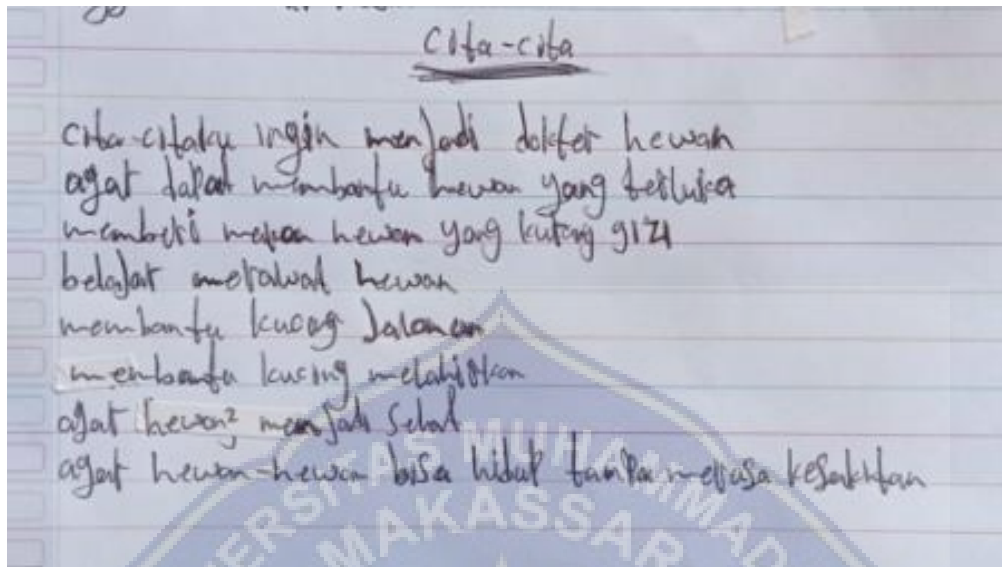 Cita-cita
cita-citaku ingin menjadi dokter hewan
agar dapat membantu hewan yang terluka
memberi makan hewan yang kurang gizi
belajar merawat hewan
membantu kucing Jalanan
membantu kucing melahirkan
agar hewan² menjadi Sehat
agar hewan-hewan bisa hidup tanpa merasa kesakitan
ERSITAS MUHAMMAD
MAKASSAR